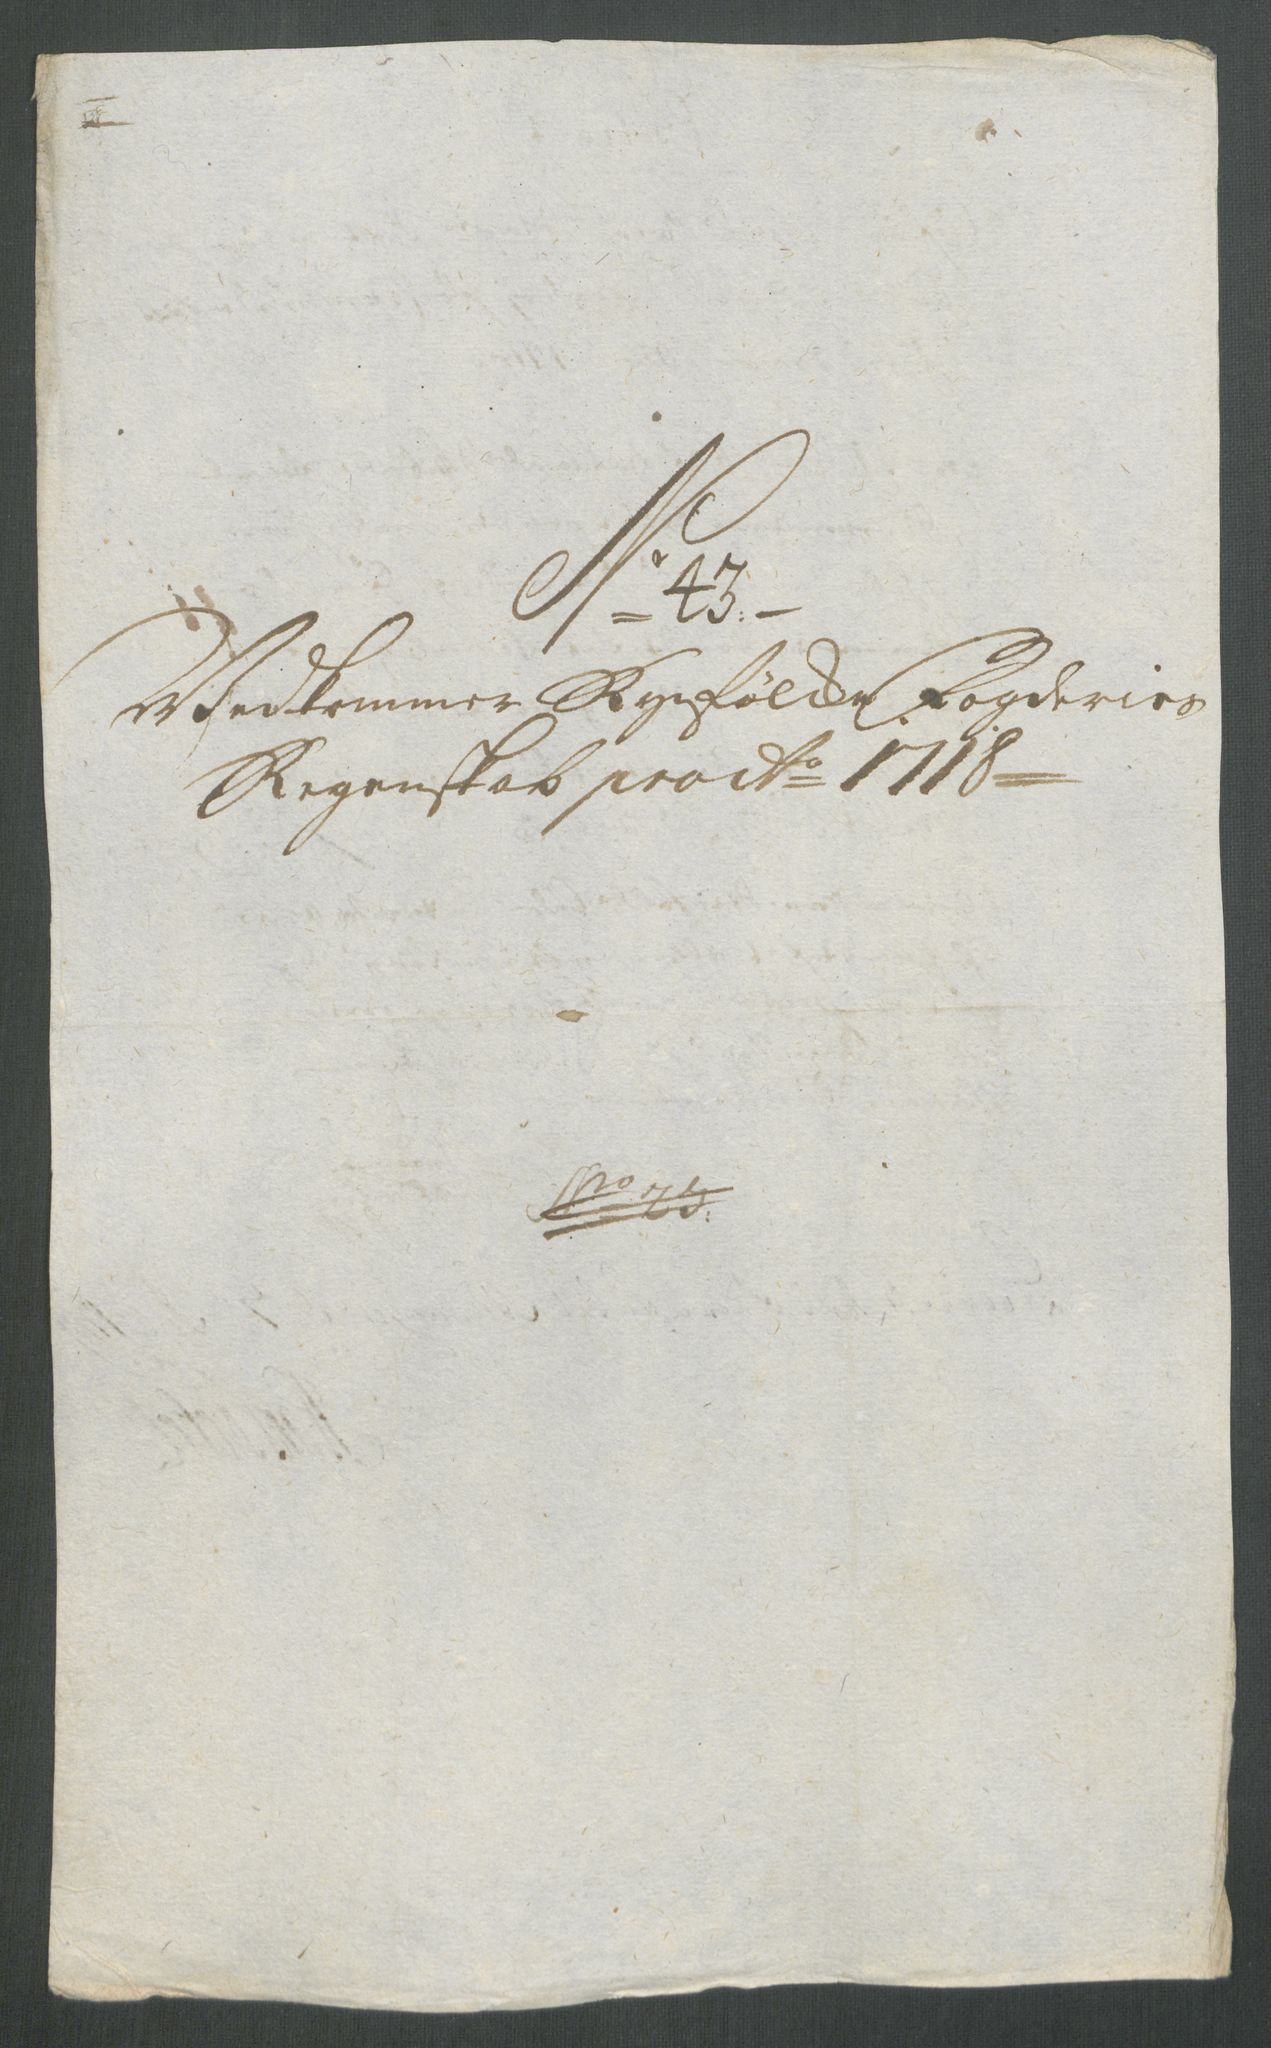 N: 43.
Vedkommer Ryefølche Fogderies
Regenskab pro Ao 1718
No 23.